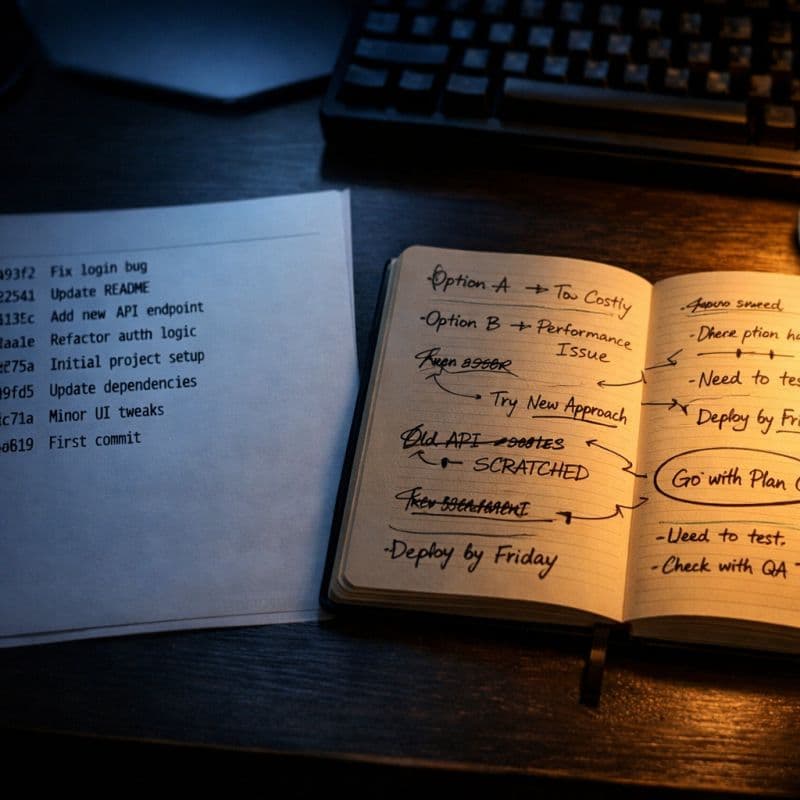 93f2 Fix login bug
22541 Update README
Add new API endpoint
Refactor auth logic
75a Initial project setup
9fd5 Update dependencies
c71a Minor UI tweaks
619 First commit
-Option A → Too Costly
-Option B → Performance
Issue
Try New Approach
Old API
SCRATCHED
-Deploy by Friday
-Need to
Deploy by
Go with Plan
-Need to test.
-Check with QA